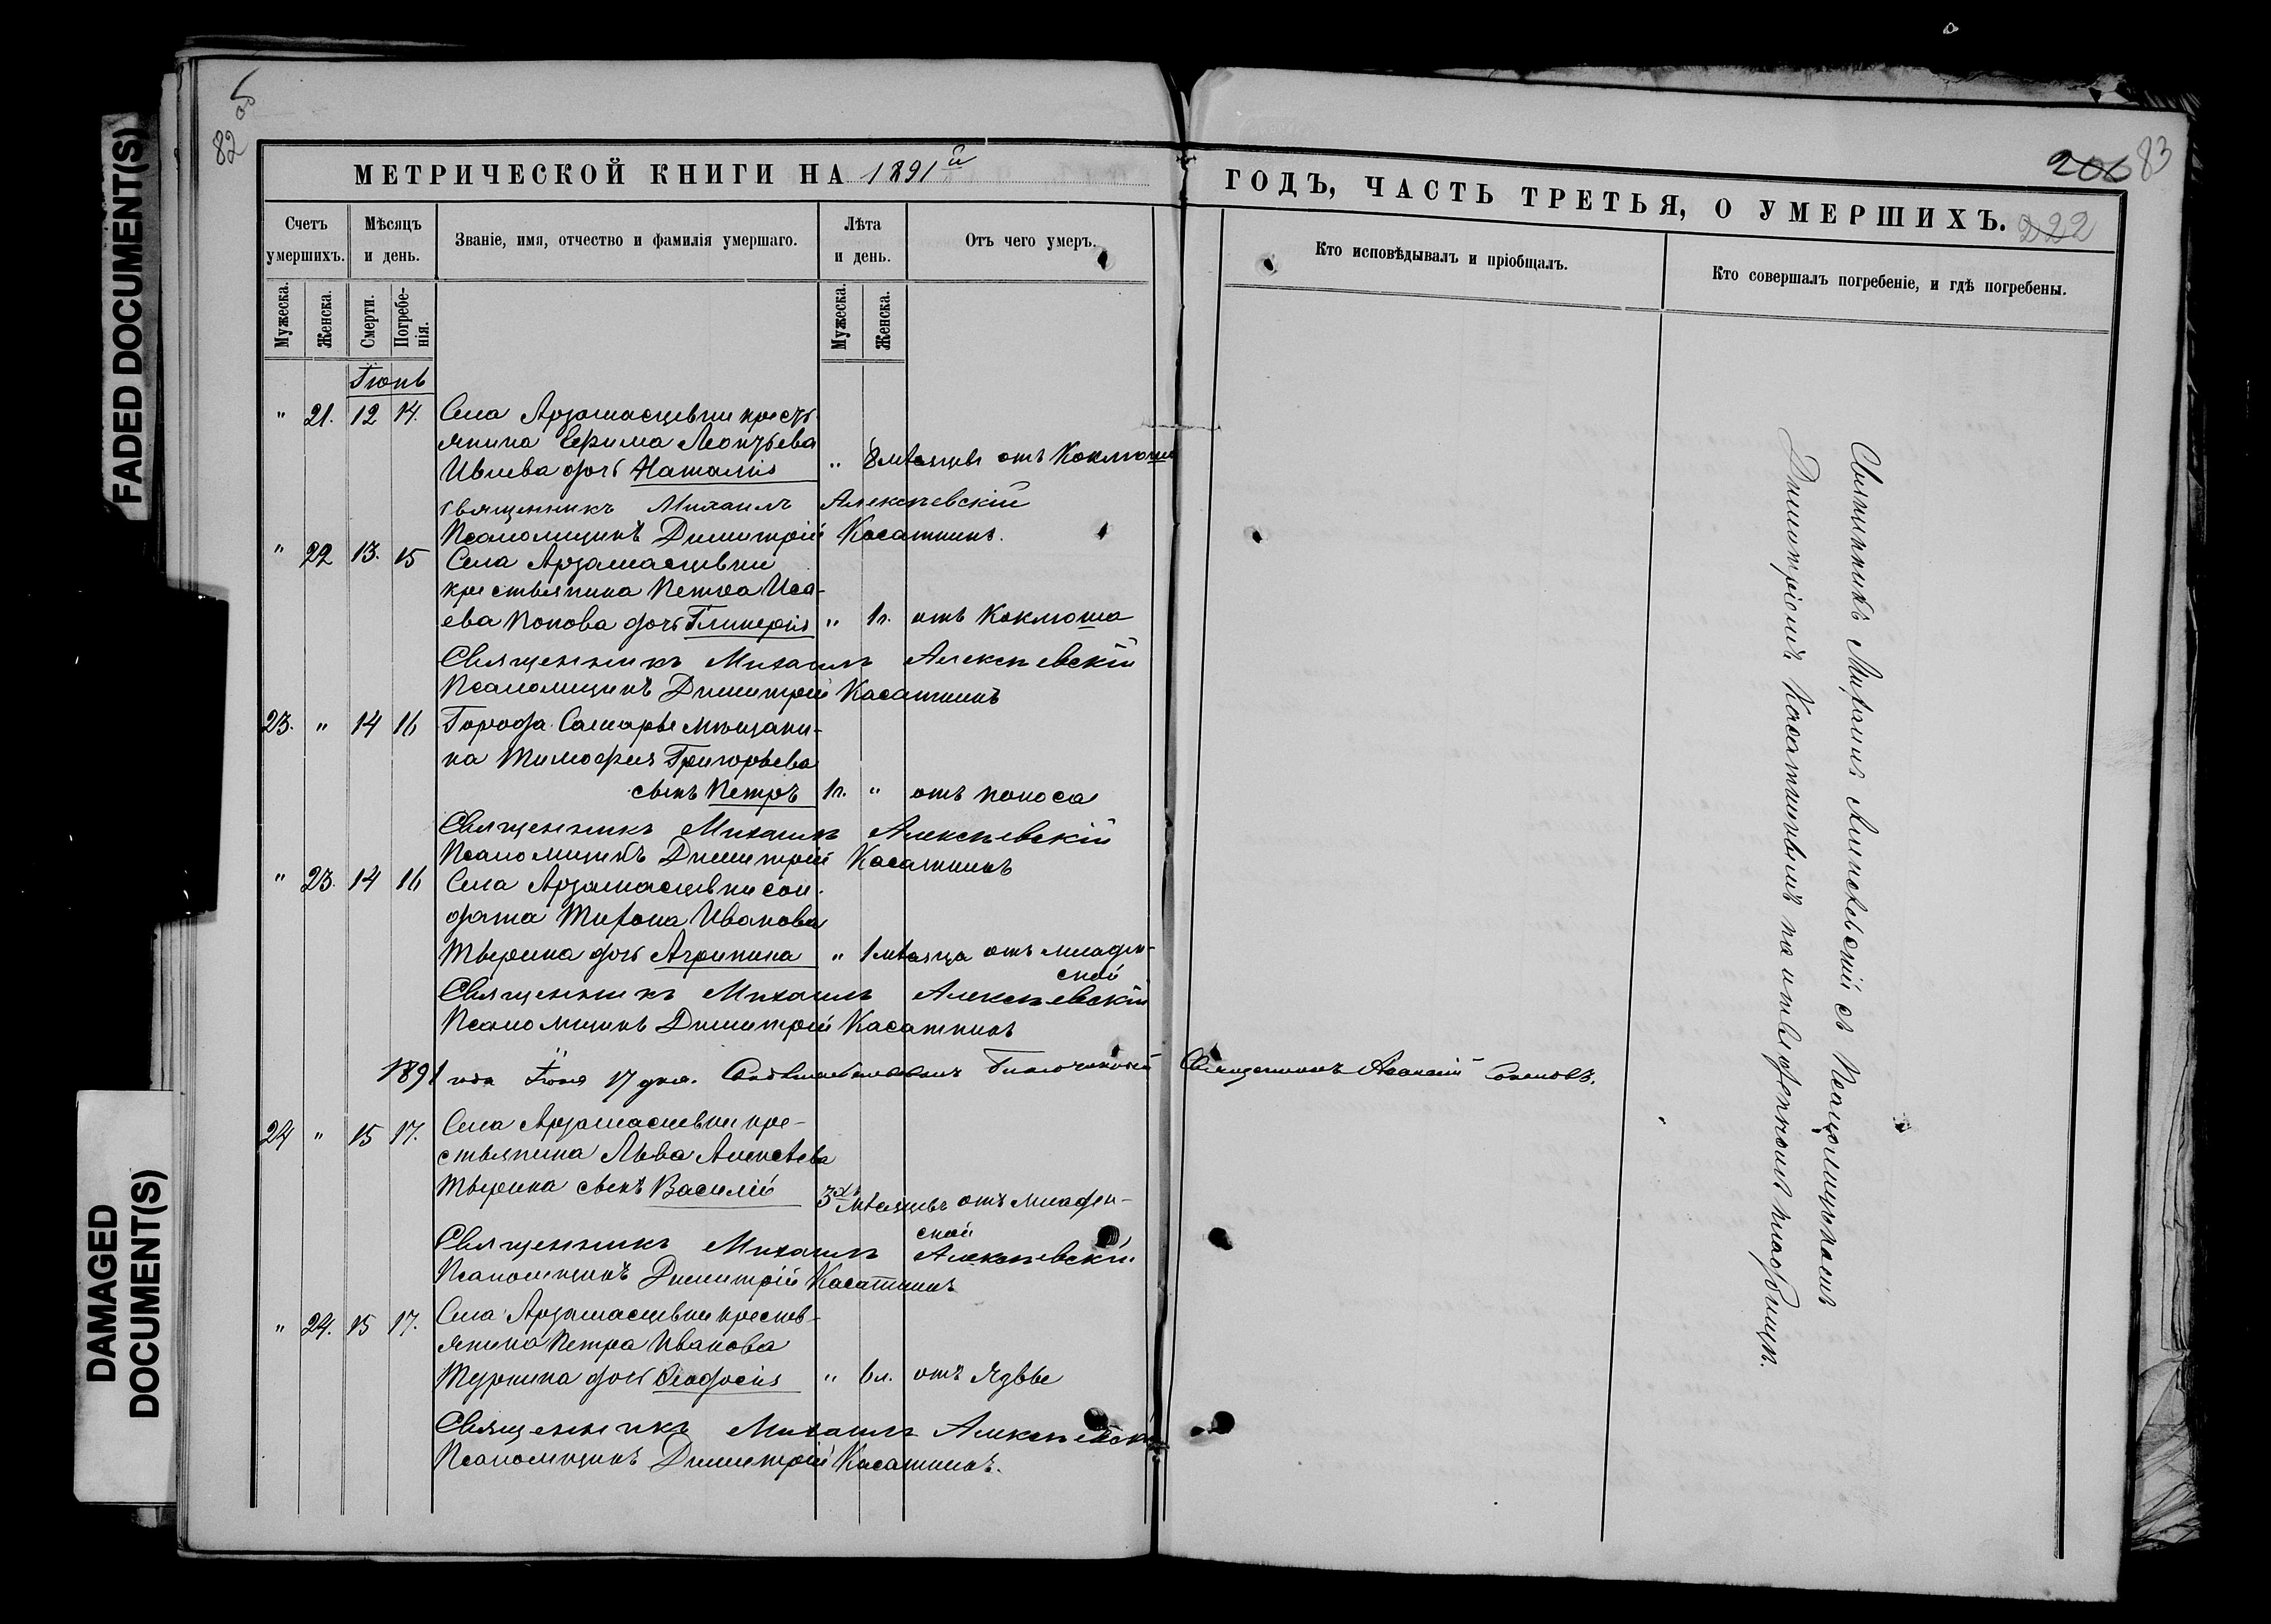 FADED DOCUMENT(S)
DAMAGED
DOCUMENT(S)
82
83
206
222
МЕТРИЧЕСКОЙ КНИГИ НА 1891й
ГОДЪ, ЧАСТЬ ТРЕТЬЯ, О УМЕРШИХЪ.
Счетъ умершихъ.
Мѣсяцъ и день.
Званіе, имя, отчество и фамилія умершаго.
Лѣта и день.
Отъ чего умеръ.
Кто исповѣдывалъ и пріобщалъ.
Кто совершалъ погребеніе, и гдѣ погребены.
Мужеска.
Женска.
Смерти.
Погребе-
нія.
Мужеска.
Женска.
Іюнь
" 21. 12 14. Села Арзамасцевки кресть-
янина Ефима Леонтьева
Ивлева дочь Наталія " 8 мѣсяцевъ отъ Коклюша
Священникъ Михаилъ Алексѣевскій
Псаломщикъ Димитрій Касаткинъ.
" 22 13. 15 Села Арзамасцевки
крестьянина Петра Иса-
ева Попова дочь Гликерія " 1 г. отъ Коклюша
Священникъ Михаилъ Алексѣевскій
Псаломщикъ Димитрій Касаткинъ
23. " 14 16 Города Самары мѣщани-
на Тимофея Григорьева
сынъ Петръ 1 г. " отъ поноса
Священникъ Михаилъ Алексѣевскій
Псаломщикъ Димитрій Касаткинъ
" 23. 14 16 Села Арзамасцевки сол-
дата Тихона Иванова
Тверина дочь Агрипина " 1 мѣсяца отъ младен-
ской
Священникъ Михаилъ Алексѣевскій
Псаломщикъ Димитрій Касаткинъ
1891 года Іюня 17 дня. Благочинный Священникъ
24 " 15 17. Села Арзамасцевки кре-
стьянина Льва Алексѣева
Тверина сынъ Василій 3хъ мѣсяцевъ отъ младен-
ской
Священникъ Михаилъ Алексѣевскій
Псаломщикъ Димитрій Касаткинъ
" 24. 15 17. Села Арзамасцевки кресть-
янина Петра Иванова
Туркина дочь Ѳеодосія " 6 л. отъ Язвы
Священникъ Михаилъ Алексѣевскій
Псаломщикъ Димитрій Касаткинъ.
Священникъ Михаилъ Алексѣевскій съ Псаломщикомъ
Димитріемъ Касаткинымъ на отведенномъ кладбищѣ.